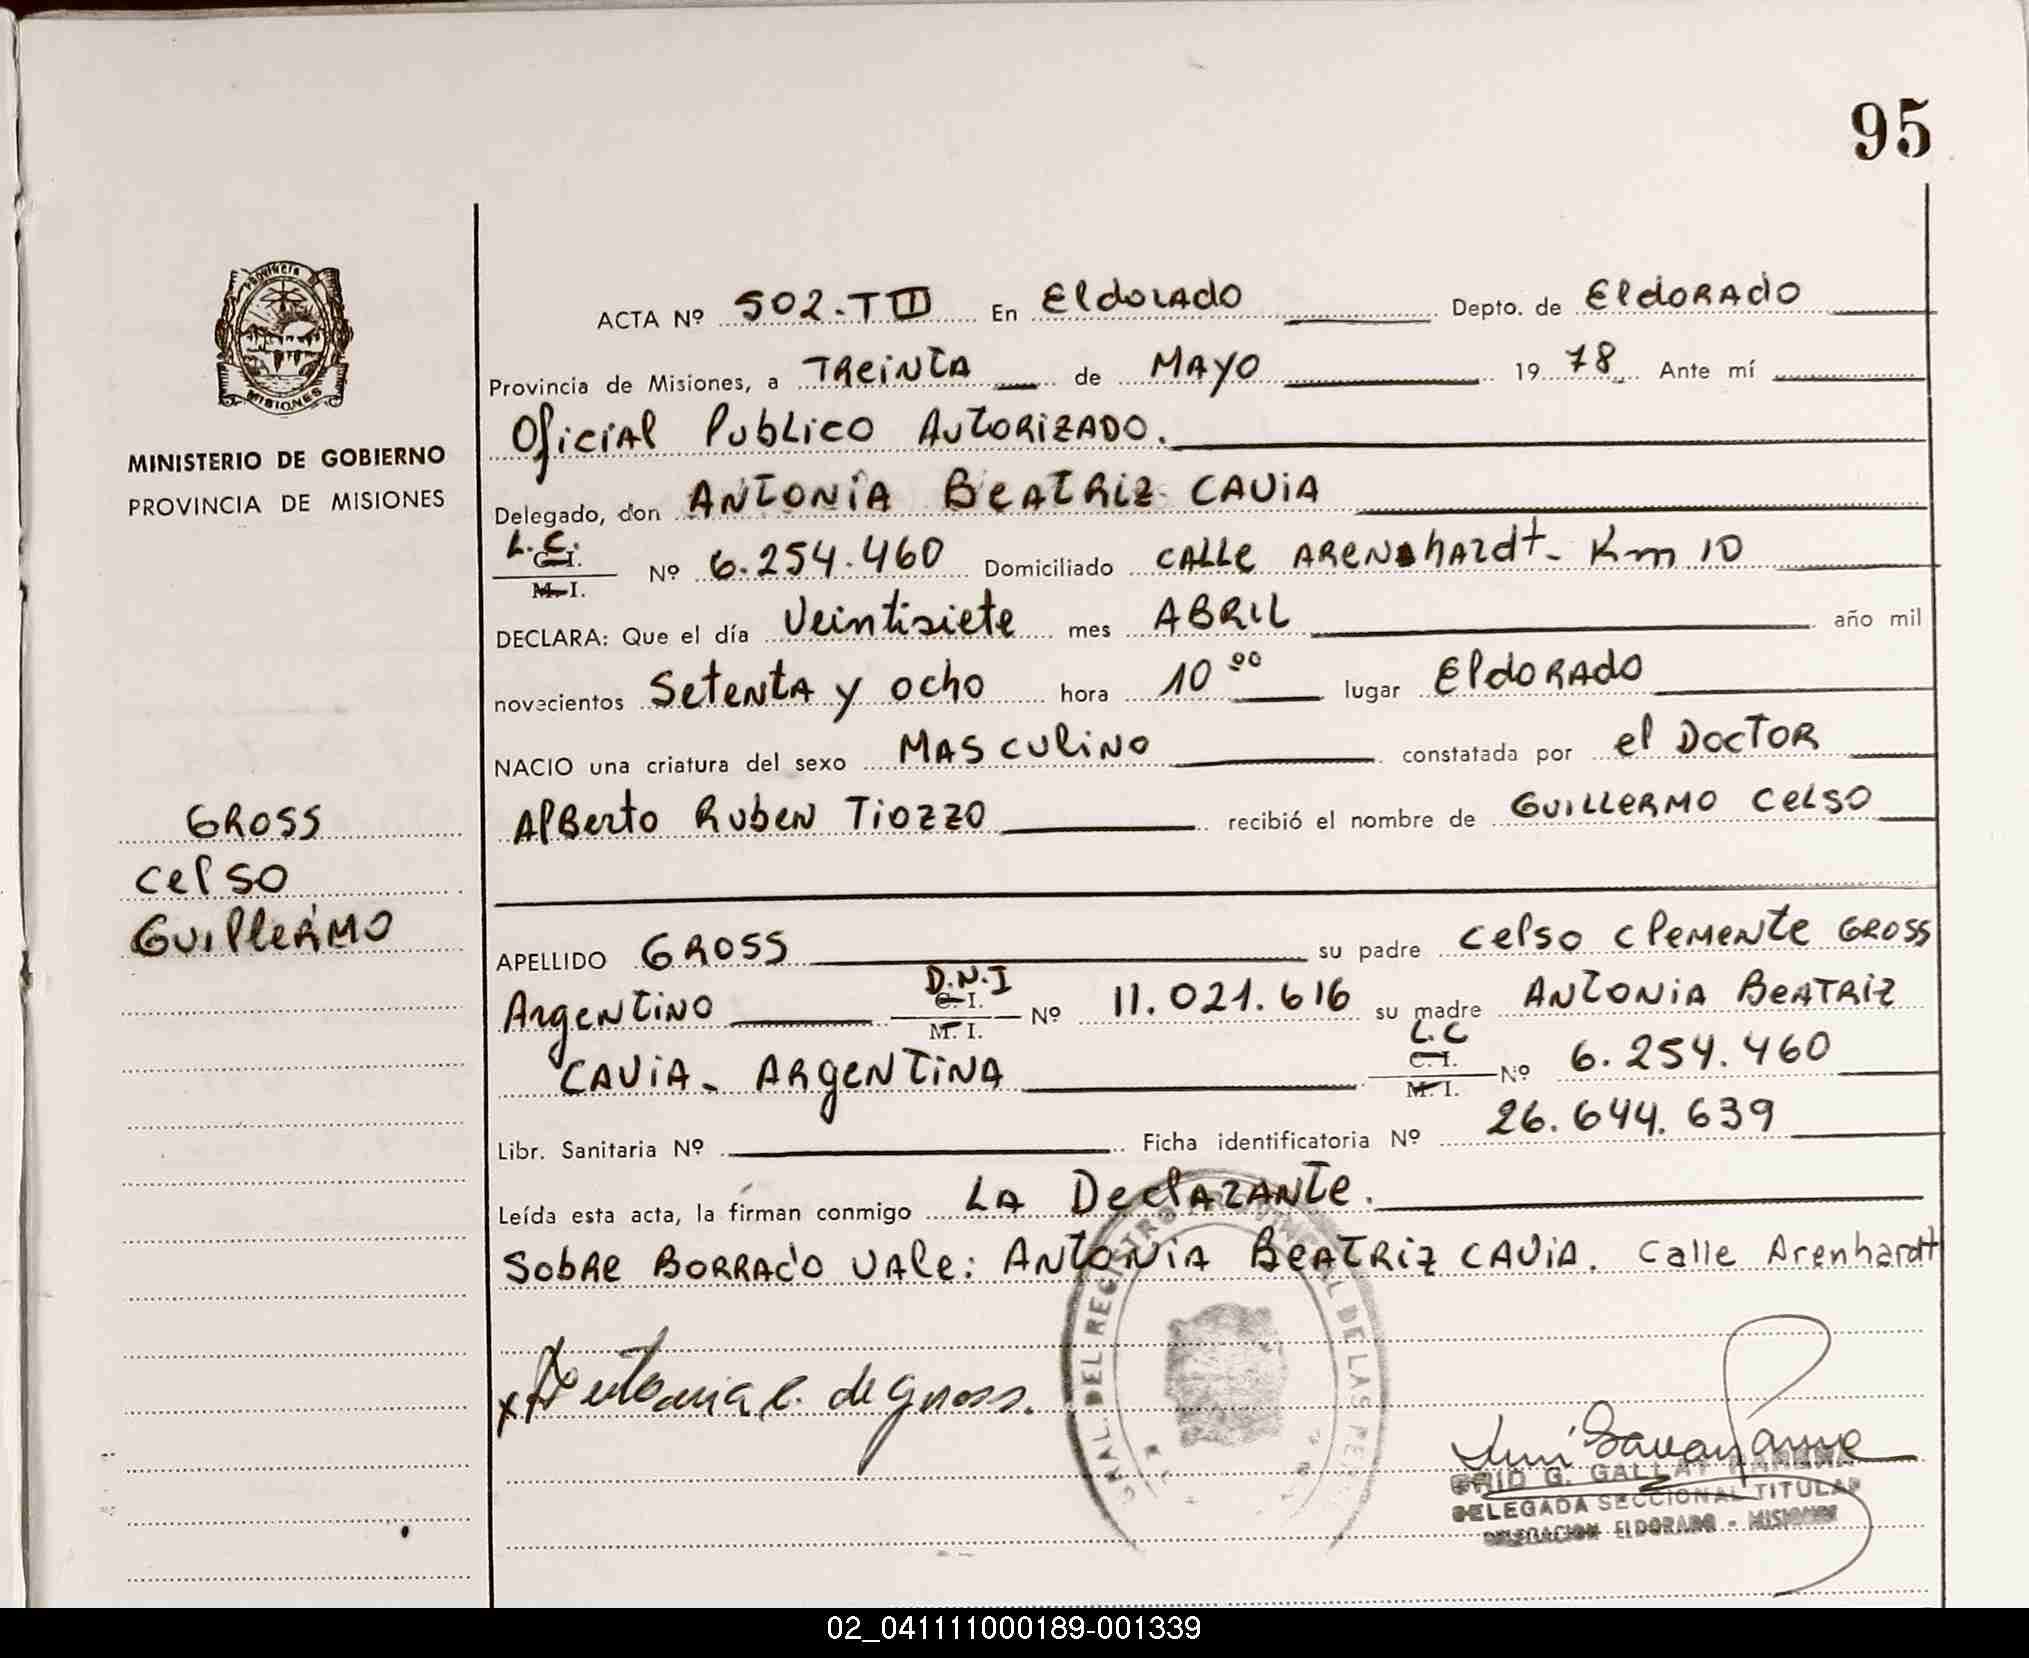 95
PROVINCIA
MISIONES
MINISTERIO DE GOBIERNO
PROVINCIA DE MISIONES
GROSS
Celso
Guillermo
ACTA Nº 502-TIII En Eldorado Depto. de Eldorado
Provincia de Misiones, a Treinta de Mayo 1978 Ante mí
Oficial Publico Autorizado.
Delegado, don Antonia Beatriz Cavia
L.C. C.I. M.I. Nº 6.254.460 Domiciliado Calle Arenhardt- Km 10
DECLARA: Que el día Veintisiete mes ABRIL año mil
novecientos Setenta y ocho hora 10 00 lugar Eldorado
NACIO una criatura del sexo Masculino constatada por el Doctor
Alberto Ruben Tiozzo recibió el nombre de Guillermo Celso
APELLIDO GROSS su padre Celso Clemente Gross
Argentino D.N.I C.I. M.I. Nº 11.021.616 su madre Antonia Beatriz
Cavia - Argentina L.C C.I. M.I. Nº 6.254.460
Libr. Sanitaria Nº Ficha identificatoria Nº 26.644.639
Leída esta acta, la firman conmigo La Declarante.
Sobre Borrado vale: Antonia Beatriz Cavia. Calle Arenhardt
x Antonia C. de Gross.
GRAL. DEL REGISTRO DE LAS
G. GALLAY
DELEGADA SECCIONAL TITULAR
DELEGACION ELDORADO - MISIONES
02_041111000189-001339